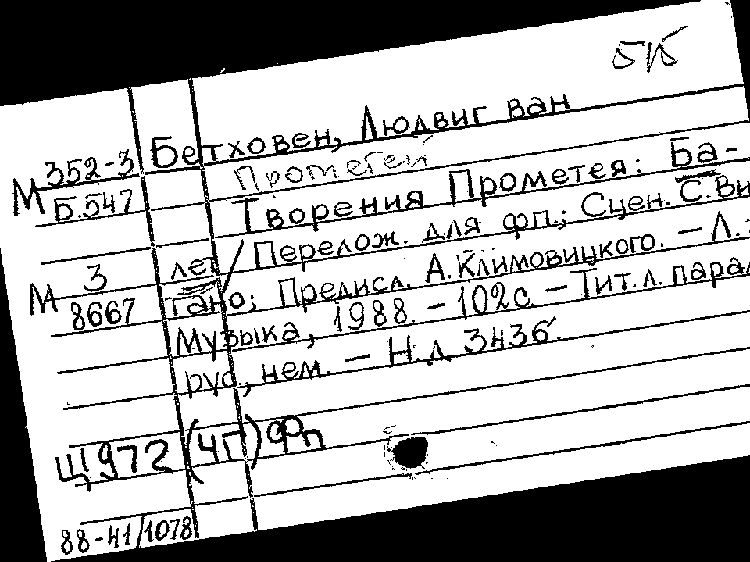 515
М 352-3 Бетховен, Людвиг ван
Б.547 Прометей
Творения Прометея: Ба-
М 3 лет / Перелож. для фп.; Сцен. С. Ви
8667 гано; Предисл. А. Климовицкого. — Л.:
Музыка, 1988. — 102 с. — Тит. л. парал
рус., нем. — Н.д. 3436.
Щ972 (4Г) Фп
88-41/1078